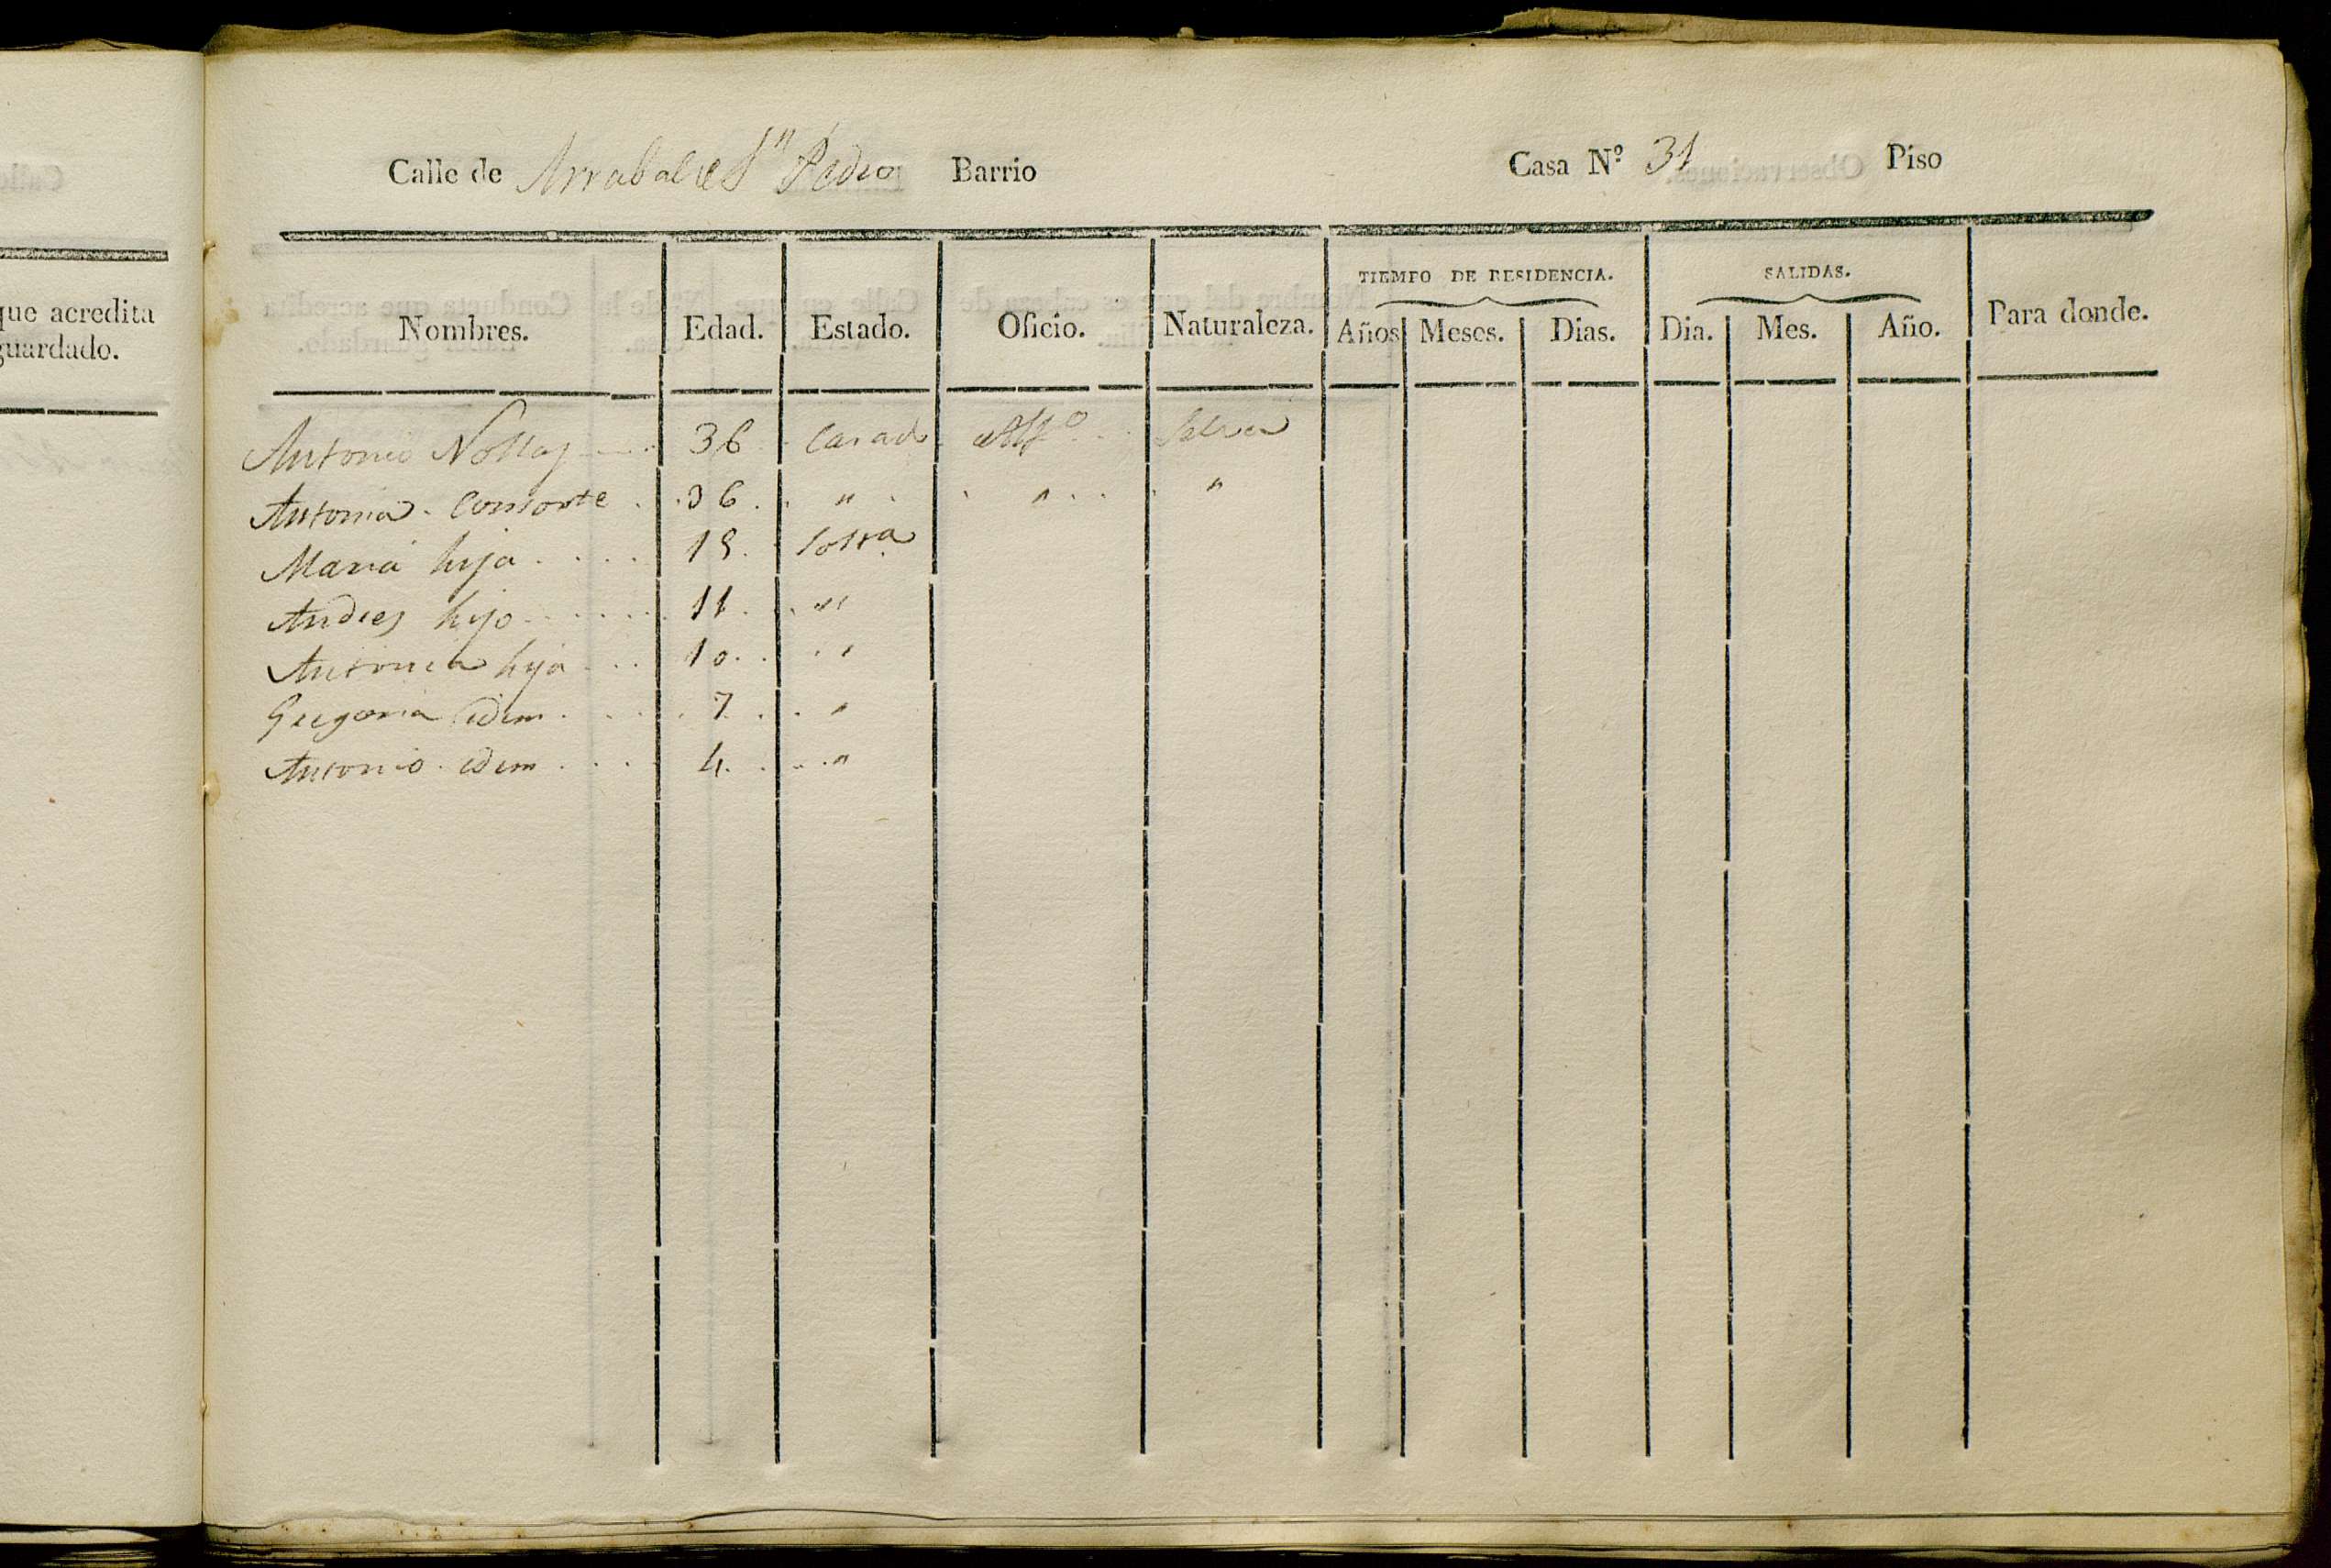 Calle de Arrabal de Sn Pedro Barrio Casa Nº 31 Piso
que acredita
guardado.
TIEMPO DE RESIDENCIA. SALIDAS.
Nombres. Edad. Estado. Oficio. Naturaleza. Años Meses. Dias. Dia. Mes. Año. Para donde.
Antonio 36 Casado
Antonia Consorte 36 " " "
Maria hija Soltra
Andres hijo 11 "
Antonia hija 10 "
Gregoria idem 7 "
Antonio idem 4 "